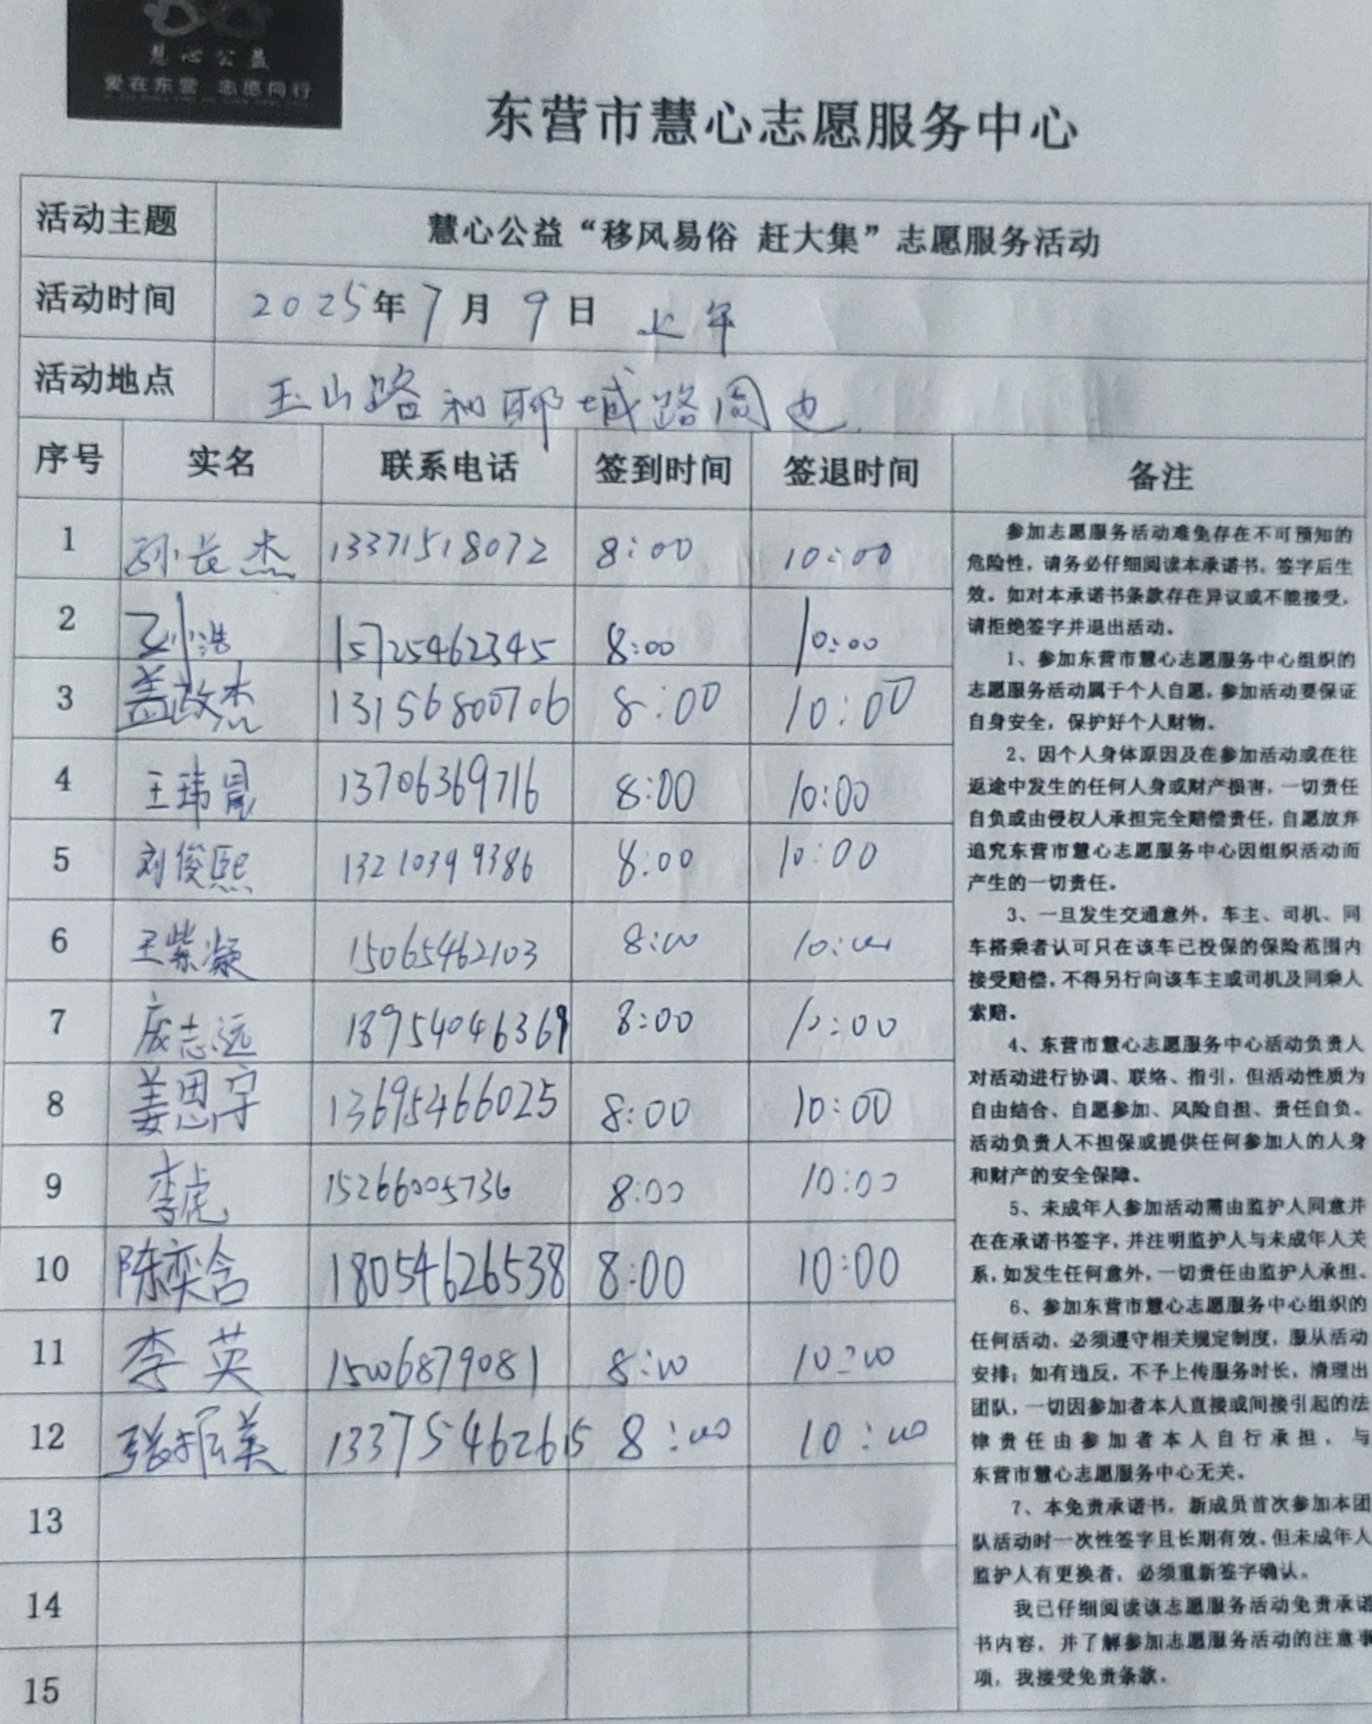 慧心公益
爱在东营 志愿同行
东营市慧心志愿服务中心
活动主题 慧心公益“移风易俗 赶大集”志愿服务活动
活动时间 2025年7月9日 上午
活动地点 玉山路和聊城路周边
序号 实名 联系电话 签到时间 签退时间 备注
1 孙长杰 13371518072 8:00 10:00
2 刘浩 15725462345 8:00 10:00
3 盖政杰 13156800706 8:00 10:00
4 王玮晨 13706369716 8:00 10:00
5 刘俊熙 13210399386 8:00 10:00
6 王紫凝 15065462103 8:00 10:00
7 庞志远 18954046369 8:00 10:00
8 姜思宇 13695466025 8:00 10:00
9 李虎 15266005736 8:00 10:00
10 陈奕含 18054626538 8:00 10:00
11 李英 15006879081 8:00 10:00
12 张振美 13375462615 8:00 10:00
13
14
15
参加志愿服务活动难免存在不可预知的
危险性，请务必仔细阅读本承诺书，签字后生
效。如对本承诺书条款存在异议或不能接受，
请拒绝签字并退出活动。
1、参加东营市慧心志愿服务中心组织的
志愿服务活动属于个人自愿，参加活动要保证
自身安全，保护好个人财物。
2、因个人身体原因及在参加活动或在往
返途中发生的任何人身或财产损害，一切责任
自负或由侵权人承担完全赔偿责任，自愿放弃
追究东营市慧心志愿服务中心因组织活动而
产生的一切责任。
3、一旦发生交通意外，车主、司机、同
车搭乘者认可只在该车已投保的保险范围内
接受赔偿，不得另行向该车主或司机及同乘人
索赔。
4、东营市慧心志愿服务中心活动负责人
对活动进行协调、联络、指引，但活动性质为
自由结合、自愿参加、风险自担、责任自负。
活动负责人不担保或提供任何参加人的人身
和财产的安全保障。
5、未成年人参加活动需由监护人同意并
在在承诺书签字，并注明监护人与未成年人关
系，如发生任何意外，一切责任由监护人承担。
6、参加东营市慧心志愿服务中心组织的
任何活动，必须遵守相关规定制度，服从活动
安排；如有违反，不予上传服务时长，清理出
团队，一切因参加者本人直接或间接引起的法
律责任由参加者本人自行承担，与
东营市慧心志愿服务中心无关。
7、本免责承诺书，新成员首次参加本团
队活动时一次性签字且长期有效。但未成年人
监护人有更换者，必须重新签字确认。
我已仔细阅读该志愿服务活动免责承诺
书内容，并了解参加志愿服务活动的注意事
项，我接受免责条款。